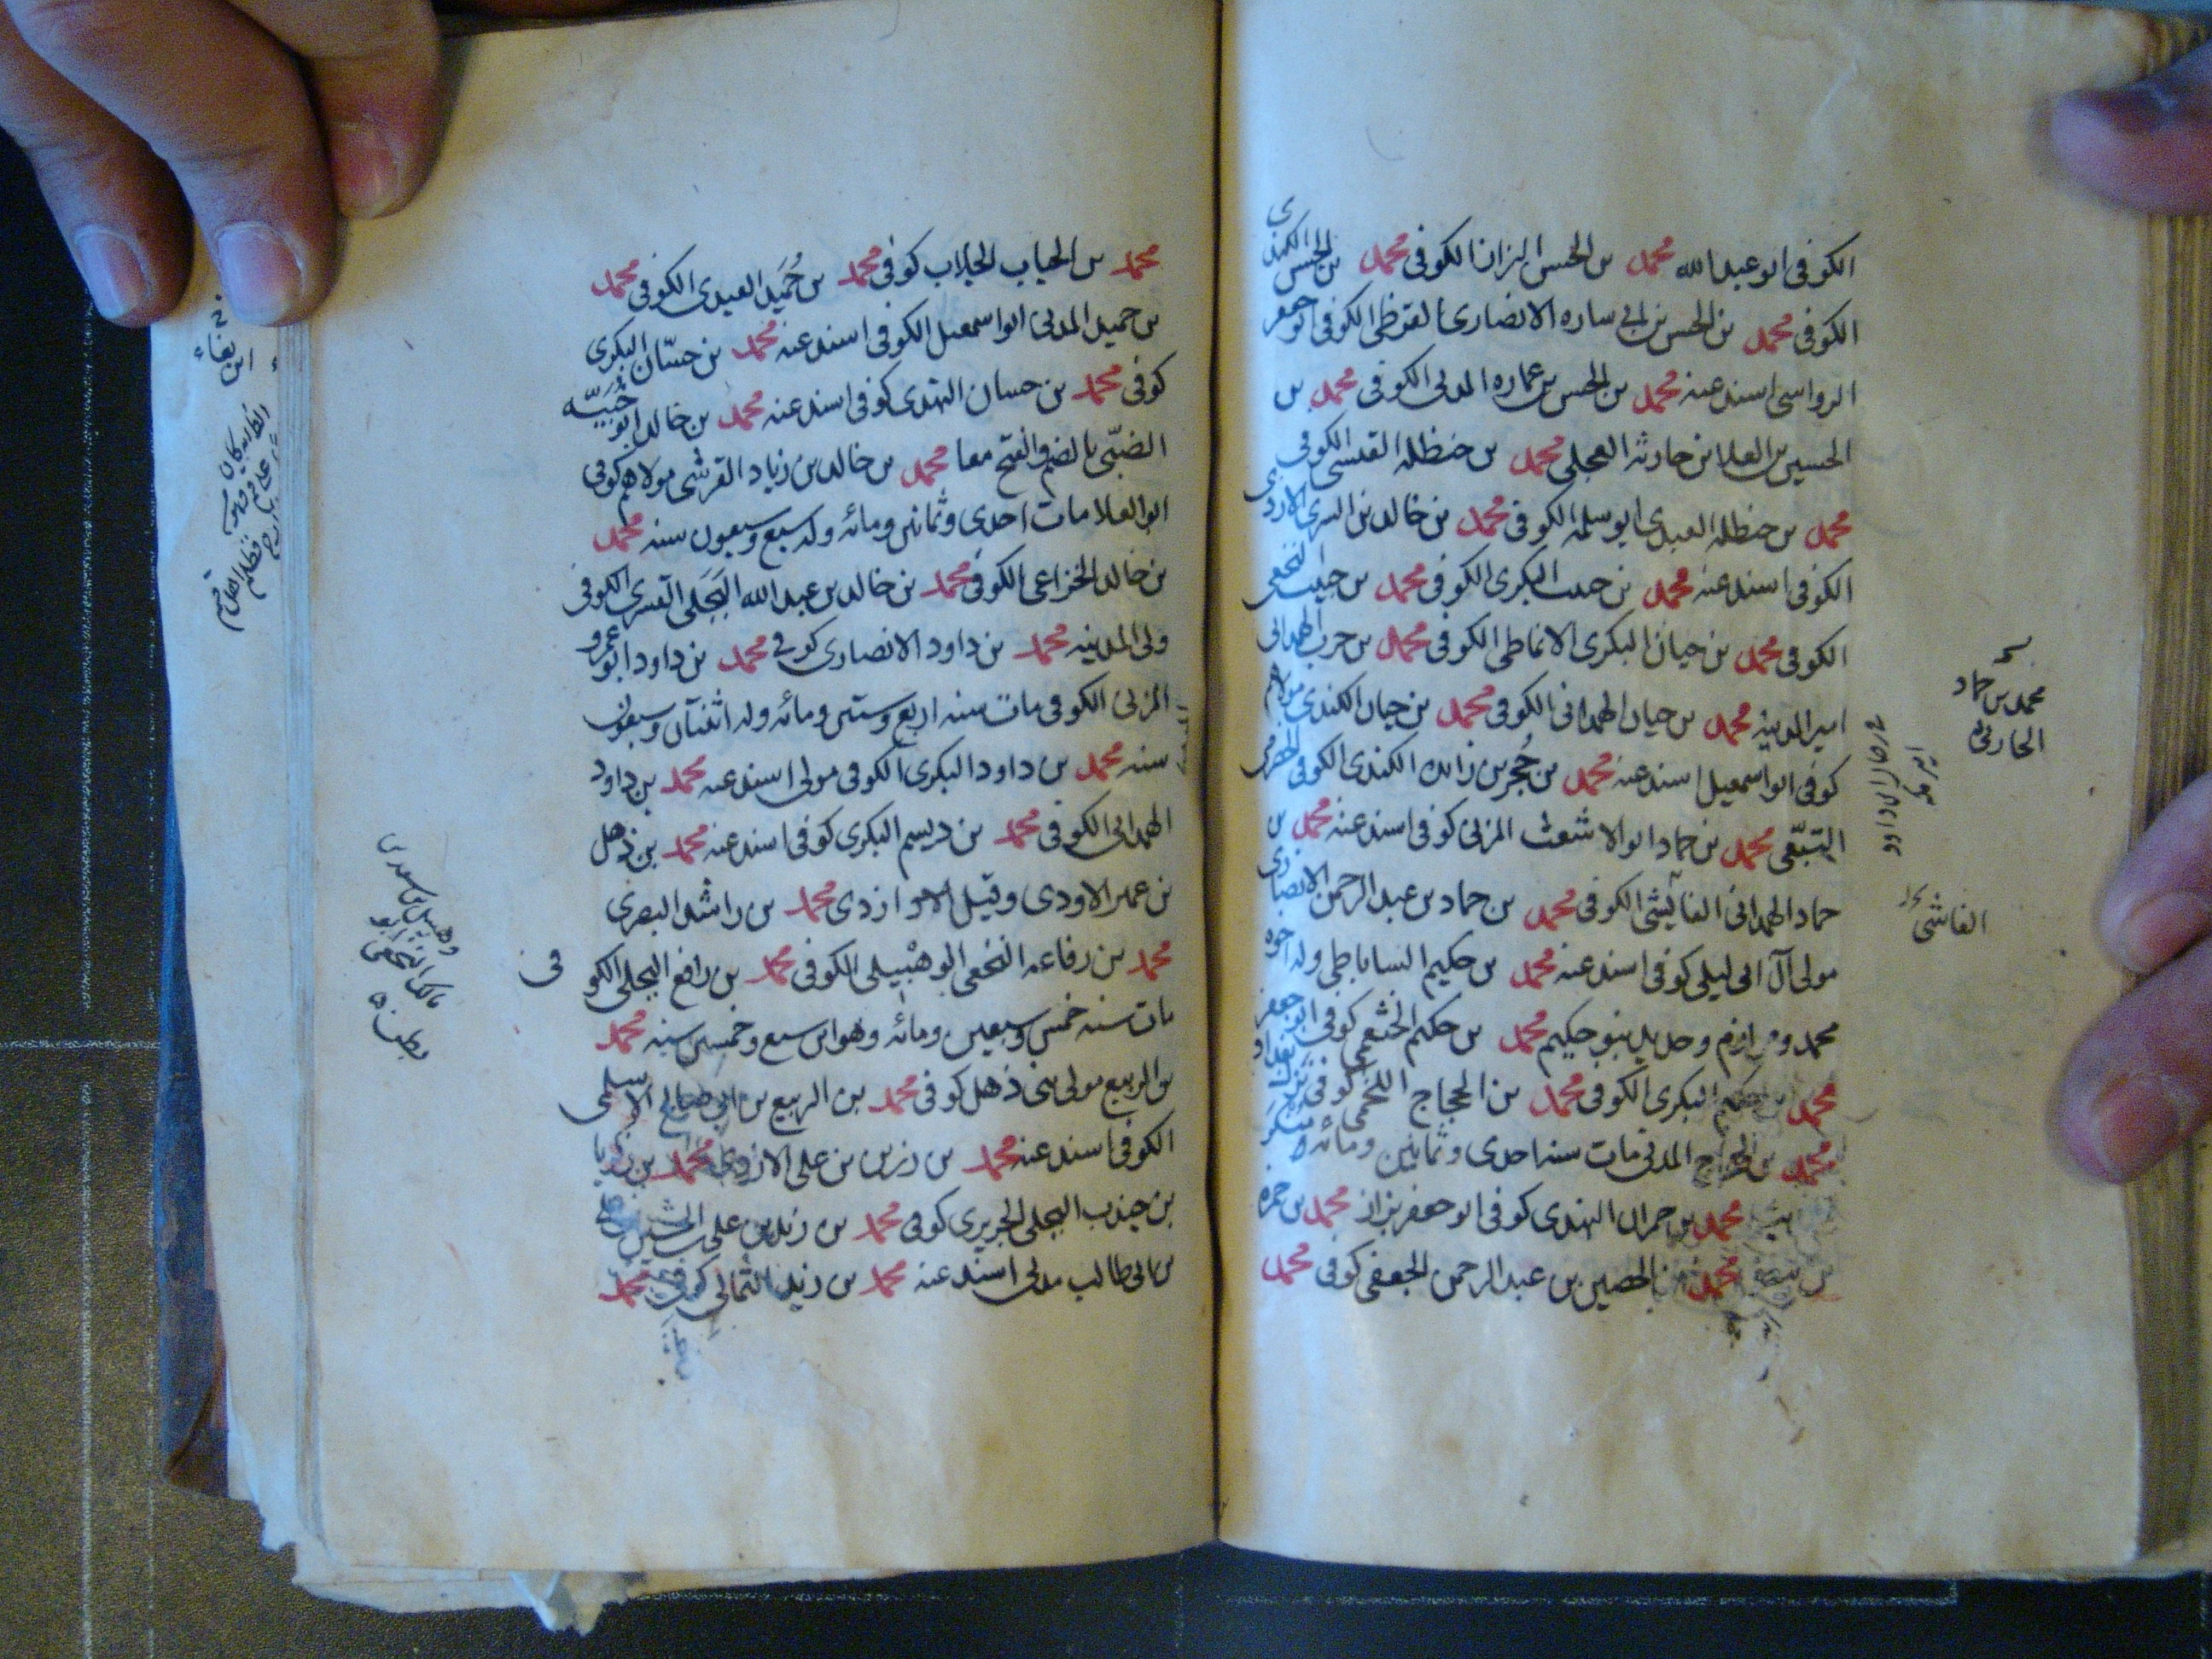 الكوفى ابو عبد الله محمد بن الحسن البزاز الكوفى محمد بن الحسن الكندى
الكوفى محمد بن الحسن بن ابى ساره الانصارى القرظى الكوفى ابو جعفر
الرواسى اسند عنه محمد بن الحسن بن عماره المدنى الكوفى محمد بن
الحسين بن العلا بن حارثه العجلى محمد بن حنظله القيسى الكوفى
محمد بن حنظله العبدى ابو سلمه الكوفى محمد بن خالد بن السرى الازدى
الكوفى اسند عنه محمد بن حبيب البكرى الكوفى محمد بن حبيب النخعى
الكوفى محمد بن حيان البكرى الانماطى الكوفى محمد بن حرب الهمدانى
امير المدينه محمد بن حيان الهمدانى الكوفى محمد بن حيان الكندى مولاهم
كوفى ابو اسمعيل اسند عنه محمد بن حُجر بن زائده الكندى الكوفى الحضرمى
التبعّى محمد بن حماد ابو الاشعث المزنى كوفى اسند عنه محمد بن
حماد الهمدانى الفايشى الكوفى محمد بن حماد بن عبد الرحمن الانصارى
مولى آل ابى ليلى كوفى اسند عنه محمد بن حكيم الساباطى وله اخوه
محمد ومرازم وحديد بنو حكيم محمد بن حكيم الخثعمى كوفى ابو جعفر
محمد بن الحكم البكرى الكوفى محمد بن الحجاج اللخمى كوفى
محمد بن الحجاج المدنى مات سنه احدى وثمانين ومائه
محمد بن حمران النهدى كوفى ابو جعفر بزاز محمد بن حمزه
محمد بن الحصين بن عبد الرحمن الجعفى كوفى محمد
محمد بن حماد
الحارثى
الفاشى
محمد بن الحباب الجلاب كوفى محمد بن حُمَيد العبدى الكوفى محمد
بن حميد المدنى ابو اسمعيل الكوفى اسند عنه محمد بن حسّان البكرى
كوفى محمد بن حسان النهدى كوفى اسند عنه محمد بن خالد ابو خُبَيّه
الضبّى بالضم والفتح معا محمد بن خالد بن زياد القرشى مولاهم كوفى
ابو العلا مات احدى وثمانين ومائه وله سبع وسبعون سنه محمد
بن خالد الخزاعى الكوفى محمد بن خالد بن عبد الله البَجَلى القسرى الكوفى
ولى المدينه محمد بن داود الانصارى كوفى محمد بن داود ابو عمرو
المزنى الكوفى مات سنه اربع وستين ومائه وله اثنتان وسبعون
سنه محمد بن داود البكرى الكوفى مولى اسند عنه محمد بن داود
الهمدانى الكوفى محمد بن دريسم البكرى كوفى اسند عنه محمد بن ذهل
بن عمير الاودى وقيل الازدى محمد بن راشد البصرى
محمد بن رفاعه النخعى الوهْبيلى الكوفى محمد بن رافع البجلى الكوفى
مات سنه خمس وسبعين ومائه وهو ابن سبع وخمسين سنه محمد
بن الربيع مولى بنى ذهل كوفى محمد بن الربيع بن ابى صالح الاسلمى
الكوفى اسند عنه محمد بن رزين بن على الازدى محمد بن
بن جندب البجلى الجريرى كوفى محمد بن زيد بن على بن الحسين بن على
بن ابى طالب مدنى اسند عنه محمد بن زيد الثمالى كوفى محمد
وهبيل بن سعد بن
مالك النخعى ابو